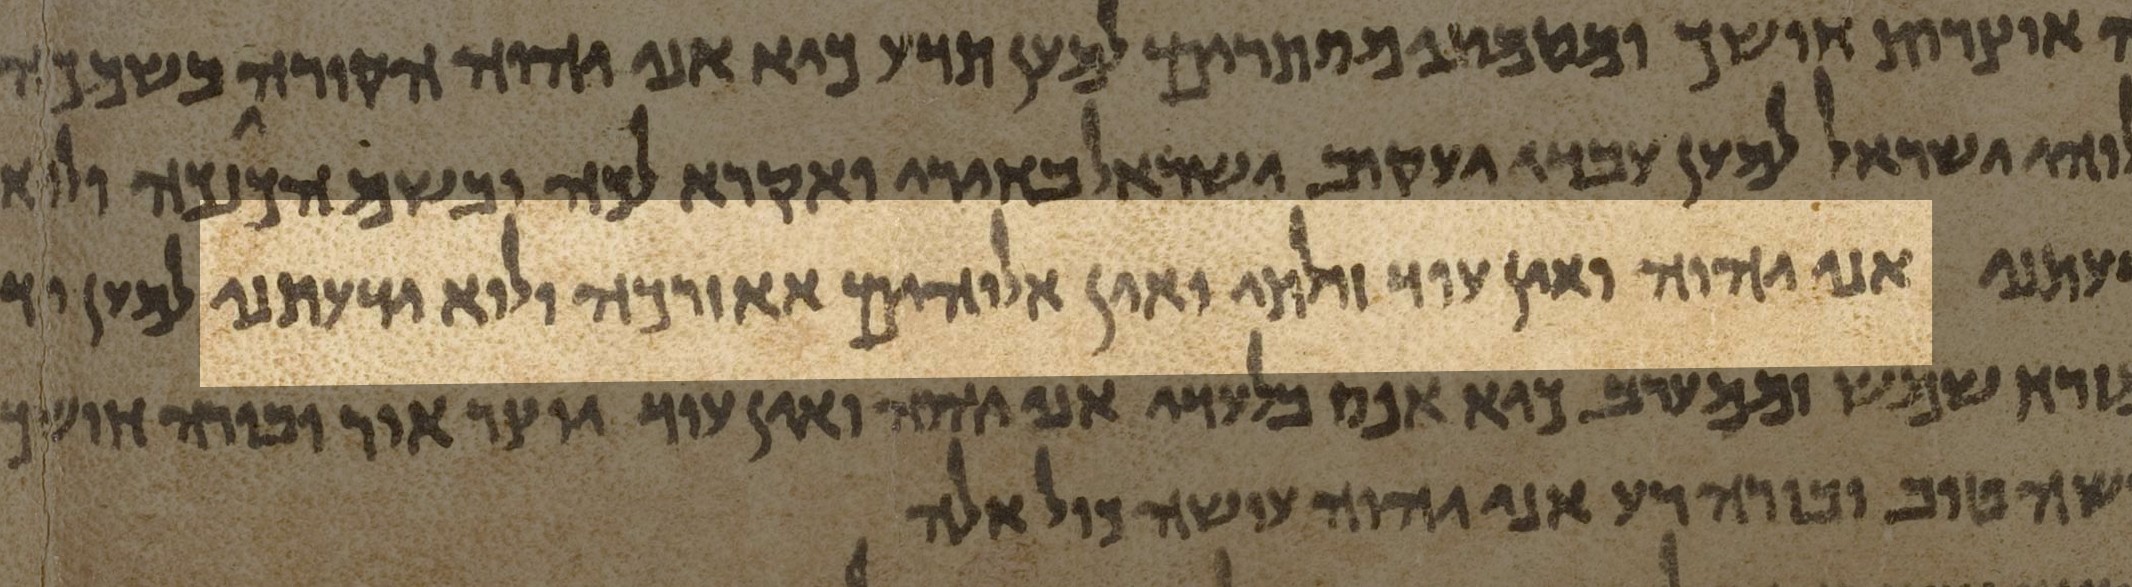 אוצרות חושך ומטמוני מסתרים למען תדע כיא אני יהוה הקורה בשמכה
ישראל למען עבדי יעקוב ישראל בחירי ואקרא לכה ובשם ולוא
אני יהוה ואין עוד זולתי ואין אלוהים אאזורכה ולוא ידעתני למען
שמש וממערב כיא אפס בלעדי אני יהוה ואין עוד יוצר אור ובורה חושך
טוב ובורה רע אני יהוה עושה כול אלה